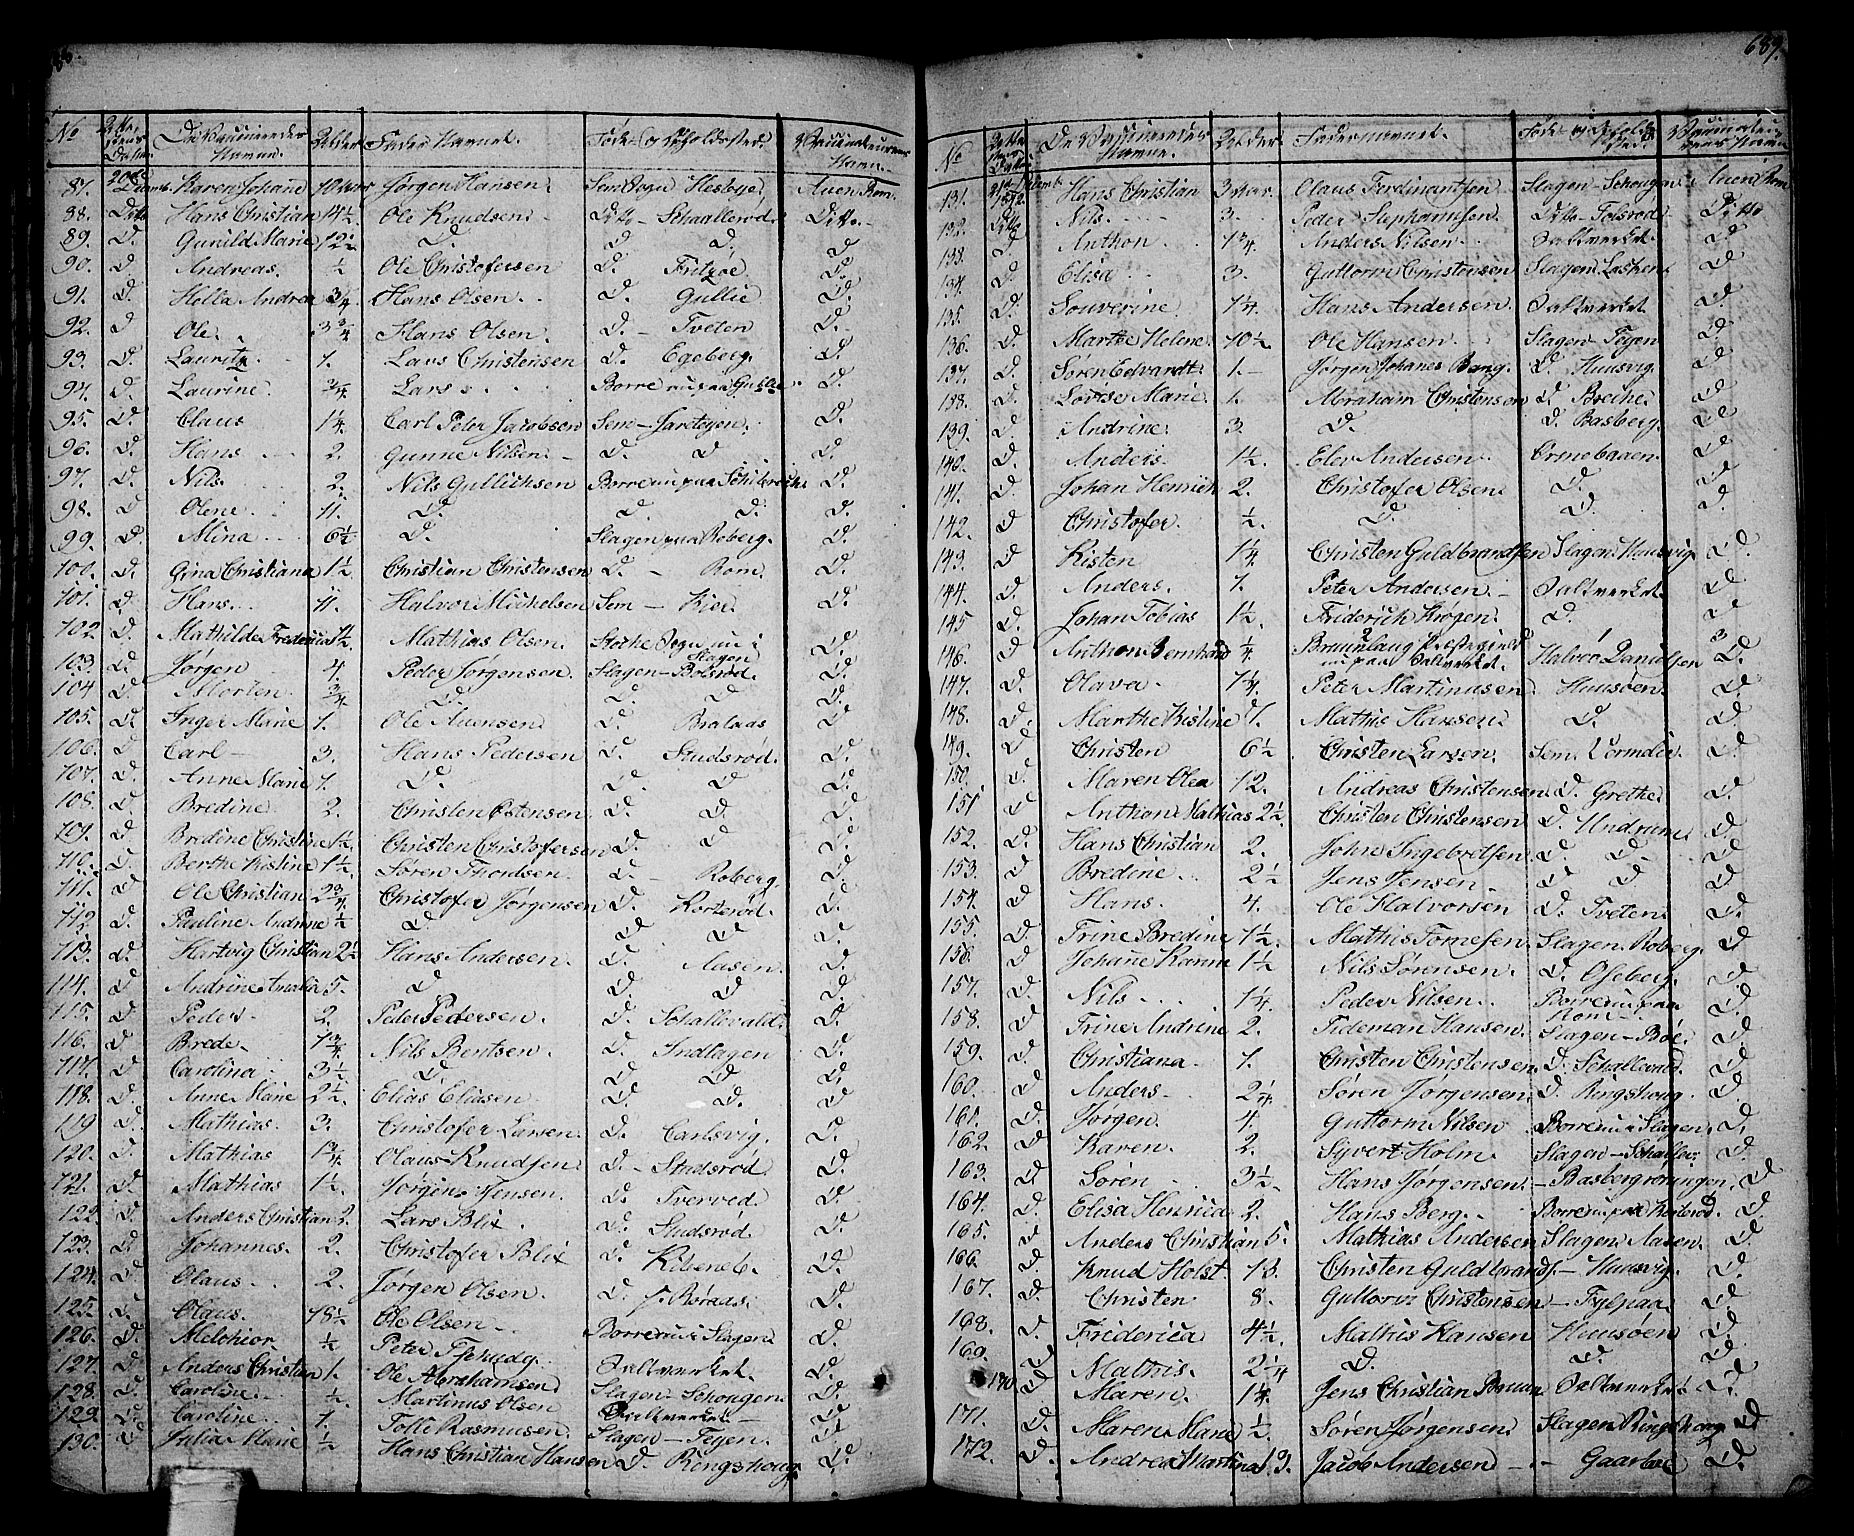 689.
No De Vaccineredes Navne. Alder Fader Navnet. Føde- og Opholdssted. Vaccinateurens Navn.
87. Karen Johane 10 Aar Jørgen Hansen Sem Sogn Hesbye Auen Rom.
88. Ditto Hans Christian 4½ Ole Knudsen Ditto- Skaallerød Ditto.
89. D. Gunild Marie 12½ D. D. D. D.
90. D. Andreas. ½ Ole Christofersen D. Fritzøe D.
91. D. Hella Andrea ¾ Hans Olsen D. Gullie D.
92. D. Ole 3¾ Hans Olsen. D. - Tveten D.
93. D. Lauritz 1. Lars Christensen D. Egeberg. D.
94. D. Laurine ¾ Lars Borre nu paa Gullie D.
95. D. Claus 1¼ Carl Peter Jacobsen Sem- Jareteyen. D.
96. D. Hans 2. Gunne Nilsen D. D. D.
97. D. Nils. 2. Nils Gullichsen Borre nu paa D.
98. D. Olene 11. D. D. D. D.
99. D. Mina 6½ D. Slagen paa Roberg. D.
100. D. Gina Christiana 1½ Christian Christensen D. - Rom. D.
101. D. Hans. 11. Halvor Michelsen Sem - Kier D.
102. D. Mathilde Fredericia 1½ Mathias Olsen Stokke Sogn nu i Slagen D.
103. D. Jørgen 4. Peder Jørgensen Slagen- Bolsrød. D.
104 D. Morten ¾ D. D. D. D.
105. D. Inger Marie 1. Ole Auensen D. Bralaas D.
106. D. Carl 3. Hans Pedersen D. Studsrød. D.
107. D. Anne Marie 1. D. D. D. D.
108. D. Bredine 2. Christen Ostensen D. D. D.
109. D. Bredine Christine 1½ Christen Christofersen D. D. D.
110. D. Berthe Kistine 1½ Søren Thordsen D. - Roberg. D.
111. D. Ole Christian 2¾ Christofer Jørgensen D. Korterød. D.
112. D. Pauline Andrine ½ D. D. D. D.
113. D. Hartvig Christian 2½ Hans Andersen D. Aasen D.
114. D. Andrine Amalia 5. D. D. D. D.
115. D. Peder 2. Peder Pedersen. D. Schallevald D.
116. D. Brede 1¾ Nils Bentsen D. Indlagen D.
117. D. Carolina 3½ D. D. D. D.
118. D. Anne Marie 2½. Elias Eliasen D. D. D.
119 D. Mathias. 3. Christofer Larsen. D. Carlsvig. D.
120. D. Mathias 1¾ Olaus Knudsen D.- Studsrød D.
121. D. Mathias 1½. Jørgen Jensen. D. Tverved D.
122. D. Anders Christian 2. Lars Blix D. Studsrød D.
123. D. Johannes. 2. Christofer Blix D. D.
124. D. Olaus 2. Jørgen Olsen D. Røraas. D.
125. D. Olaus. 18½ Ole Olsen Borre nu i Slagen D.
126. D. Melchior. ½ Peter Saltværket. D.
127. D. Anders Christian 1. Ole Abrahamsen Slagen- Schougen D.
128. D. Caroline. ½ Martinus Olsen Saltværket D.
129. D. Caroline 1. Tolle Rasmusen Slagen- Teyen. D.
130. D. Julia Marie ½ Hans Christian Hansen D. Ringshoug D.
No De Vaccineredes Navne. Alder Fader navnet. Føde- og Opholdssted. Vaccinateurens Navn
131. Hans Christian 3 Aar. Olaus Ferdinantsen Slagen- Schougen Auen Rom
132. Ditto Nils. 3. Peder Stephansen Ditto- Tolsrød Ditto
133. D. Anthon 1¾. Anders Nilsen Saltværket D.
134. D. Elisa 3. Guttorm Christensen Slagen D.
135. D. Souverine 1¼ Hans Andersen Saltværket D.
136. D. Marthe Helene 10½ Ole Hansen Slagen- Teyen D.
137. D. Søren Edvardt 1. Jørgen Johanes Bang. D. Huusvig. D.
138. D. Lovise Marie 1. Abraham Christensen D. D.
139. D. Andrine. 3. D. D. Basberg. D.
140. D. Anders. 1½. Elev Andersen Ormebaaen. D.
141. D. Johan Henrich 2. Christofer Olsen D. D.
142. D. Christofer. ½. D. D. D.
143. D. Kisten 1¼ Christen Guldbrandsen Slagen Huusvig D.
144. D. Anders. 1. Peter Andersen Saltværket D.
145 D. Johan Tobias 1½ Friderich Krogen D. D.
146. D. Anthon Bernhard ¼ Præstegield nu paa Saltværket. Halvor Danielsen D.
147. D. Olava. 1¼ Peter Martinusen Huusøen D.
148. D. Marthe Kistine 1. Mathis Hansen D. D.
149. D. Christen 6½ Christen Larsen. Sem D.
150. D. Maren Olea 12. Andreas Christensen D. Grethe D.
151 D. Anthon Mathias 2½. Christen Christensen D. Undrum D.
152. D. Hans Christian 2. John Ingebretsen D. D. D.
153. D. Bredine 2½ Jens Jensen D. D. D.
154. D. Hans. 4. Ole Halvorsen D. Tveten D.
155. D. Trine Bredine 1½. Mathis Slagen Roberg D.
156. D. Johane Karine 1½ Nils Sørensen. D. Oseberg. D.
157. D. Nils 1¼ Peder Nilsen Borre nu paa Rom D.
158. D. Trine Andrine 2. Tideman Hansen Slagen- Bøe. D.
159. D. Christiana 1. Christen Christensen D. Schallevald D.
160. D. Anders. 2¼ Søren Jørgensen D. Ringshoug. D.
161. D. Jørgen. 4. Guttorm Nilsen Borre nu i Slagen. D.
162. D. Karen 2. Syvert Holm Slagen- D.
163. D. Søren 3½ Hans Jørgensen - Basbergrøningen. D.
164. D. Elisa Henrica 2. Hans Berg. Borre nu paa Korterød. D.
165. D. Anders Christian 5. Mathias Andersen Slagen Aasen. D.
166. D. Knud Holst. 13. Christen Guldbrands. - Huusvig. D.
167. D. Christen 8. Guttorm Christensen - D.
168. D. Friderica 4½ Mathis Hansen Huusøen D.
169. D. Mathis. 2¼ D. D. D.
170 D. Maren. 1¼. Jens Christian Saltværket D.
171. D. Maren Marie ½. Søren Jørgensen Slagen Ringshoug D.
172. D. Andrea Martina 19. Jacob Andersen Gaarboe D.